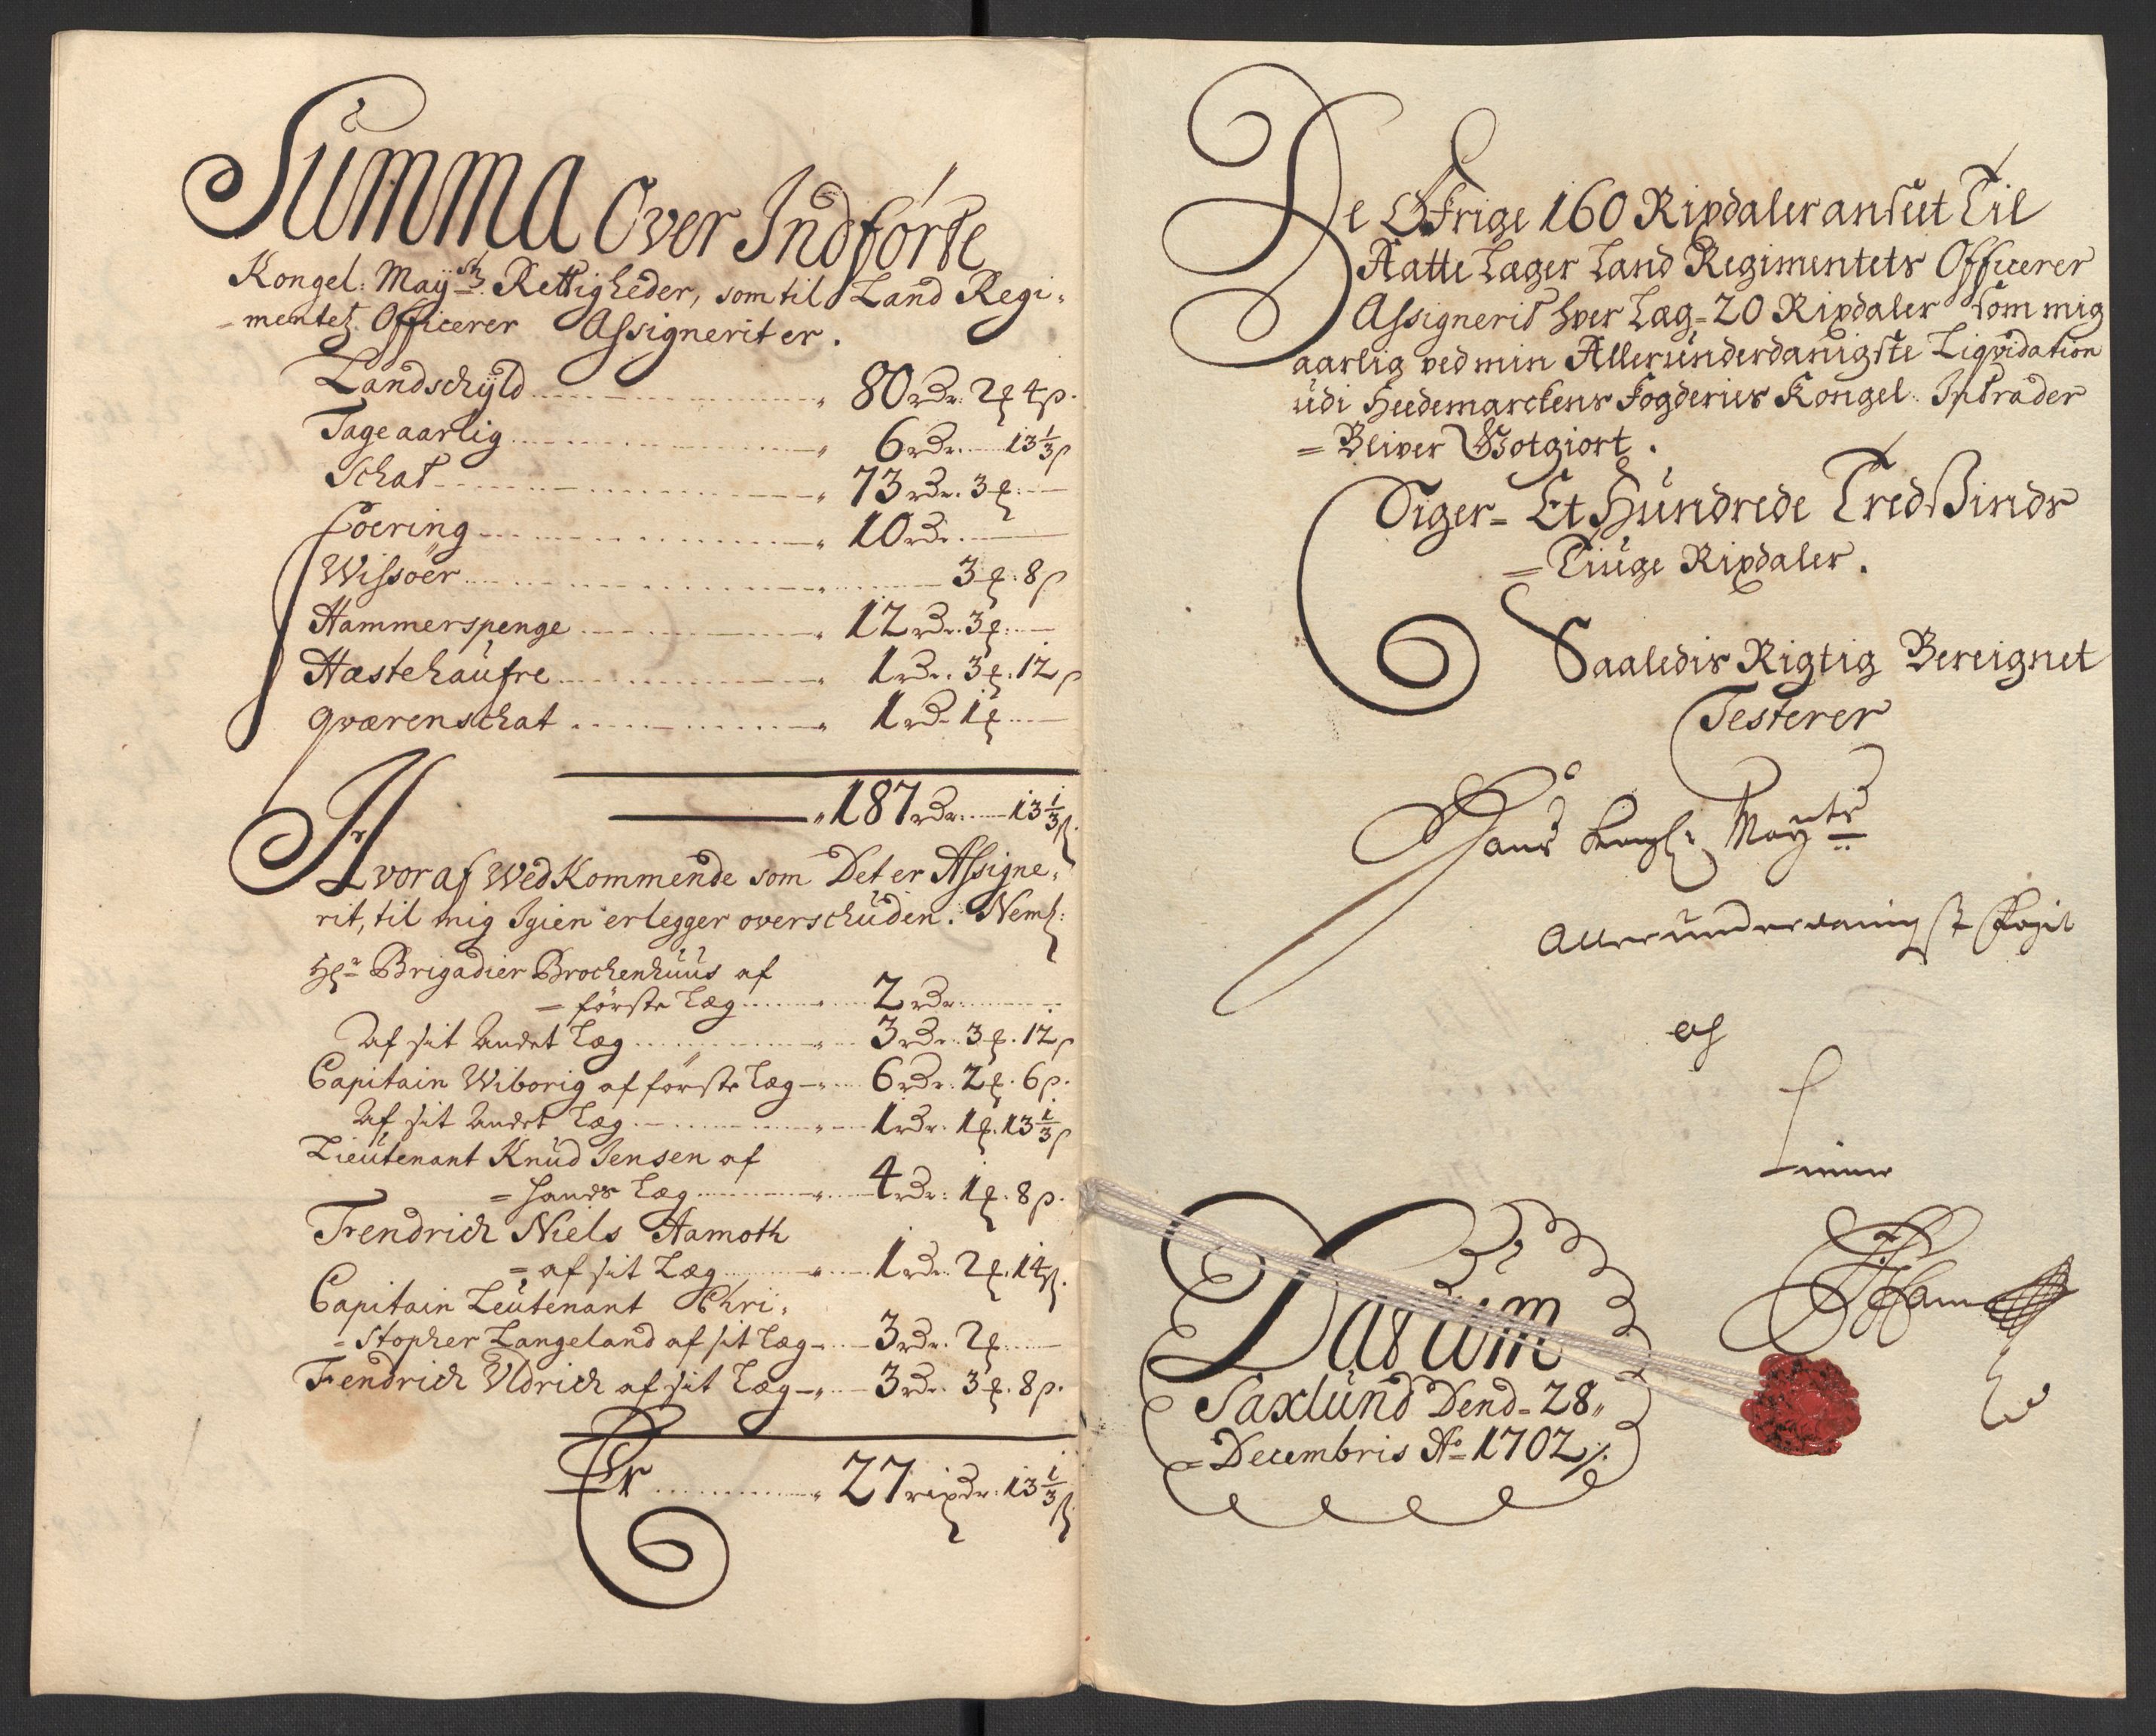 Summa Over Indförte
Kongel: Mayst: Rettigheder, som til Land Regi-
-mentetz Officerer Assignerit er.
Landschÿld 80 rdr. 2 ß 4 p.
Tage aarlig 6 rdr. 13 1/3 p
Schat 73 rdr. 3 ß
Foering 10 rdr.
Wissöer 3 ß. 8 p
Hammerspenge 12 rdr. 3 ß
Hæstehaufre 1 rdr. 3 ß. 12 p
Qværenschat 1 rd 1 ß
187 rdr. 13 1/3 ß.
Hvoraf WedKommende som Det er Assigne-
rit, til mig Igien erlegger overschuden. Neml:
Hr Brigadier Brochenhuus af
= förste Læg 2 rdr
Af sit Andet Læg 3 rdr. 3 ß. 12 p
Capitain Wiborig af förste Læg 6 rdr. 2 ß. 6 p.
Af sit Andet Læg 1 rdr. 1 ß. 13 1/3 p
Lieutenant Knud Jensen af
= hands Læg 4 rdr. 1 ß. 8 p.
Frendrich Niels Aamoth
= af sit Læg 1 rdr. 2 ß. 14 p.
Capitain Leutenant Chri-
= stopher Langeland af sit Læg 3 rdr. 2 ß
Fendrich Uldrich af sit Læg 3 rdr. 3 ß. 8 p.
Er 27 rixdr. 13 1/3 ß.
De Öfrige 160 Rixdaler ansees Til
Aatte Læger Land Regimentets Officerer
Assignerid hver Læg = 20 Rixdaler som mig
aarlig ved min Allerunderdanigste Liqvidation
udi Heedemarckens Fogderies Kongel. Intrader
= Bliver Gotgiort.
Siger = Et Hundrede Tredßinds
= Tiuge Rixdaler.
Saaledis Rigtig Bereignet
Testerer
Hans Kongl: Mayts
Allerunderdanigst Fogit
af
Datum
Saxlund Dend = 28
= Decembris Ao = 1702 /.